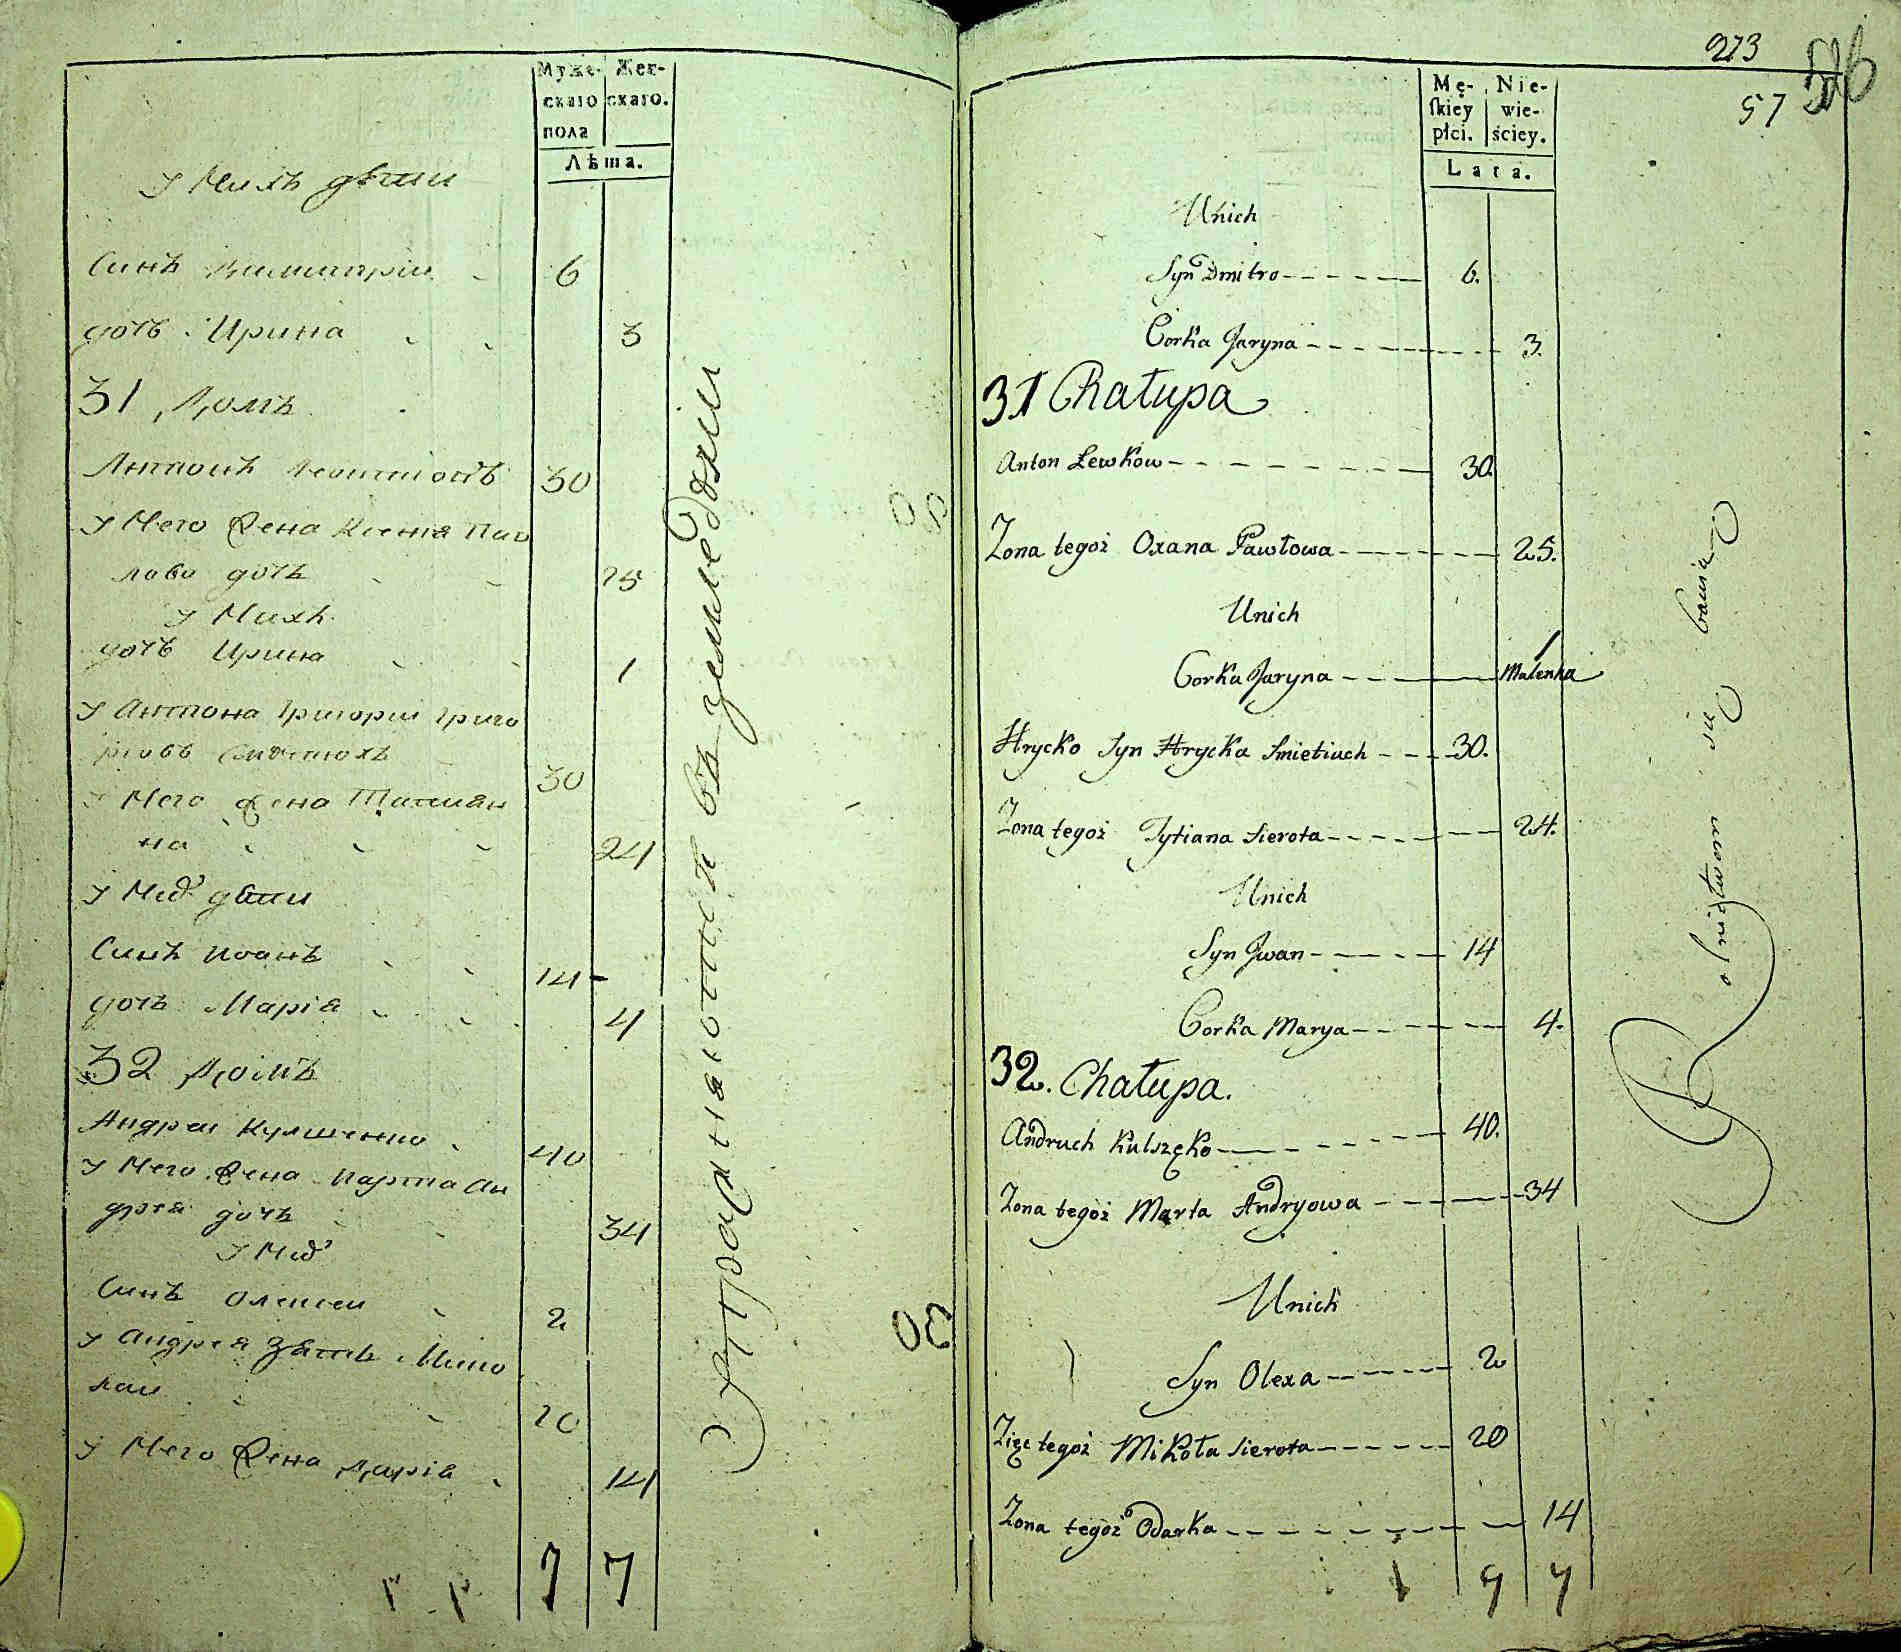 Муже-
скаго
пола
Жен-
скаго.
Лѣта.
У Нихъ дѣти
Синъ Димитрій 6
дочь Ирина 3
31 Домъ
Антонъ 30
У Него Жена Ксенія Пав
лова дочь 25
У Нихъ
дочь Ирина 1
У Антона Григорій Григо
рьовъ 30
У Него Жена Татиян
на 24
У Них дѣти
Синъ Иоанъ 14
дочь Марія 4
32 Домъ
Андрей Кулшенко 40
У Него Жена Марта Ан
дрея дочь 34
У Них
Синъ Олексей 2
У Андрея Зять Мико
лай 20
У Него Жена Дарія 14
7 7
Упражняются въ земледѣліи
273
57
Mę-
skiey
płci.
Nie-
wie-
ściey.
Lata.
Unich
Syn Dmitro 6.
Corka Jaryna 3.
31 Chałupa
Anton Lewkow 30.
Zona tegoż Oxana Pawłowa 25.
Unich
Corka Jaryna 1 Malenka
Hrycko Syn Hrycka Smietiuch 30.
Zona tegoż Tytiana Sierota 24.
Unich
Syn Jwan 14
Corka Marya 4.
32. Chałupa.
Andruch Kulszęko 40.
Zona tegoż Marta Andryowa 34
Unich
Syn Olexa 2
Zięc tegoż Mikoła Sierota 20
Zona tegoż Odarka 14
7 7
Rolnictwem się bawią